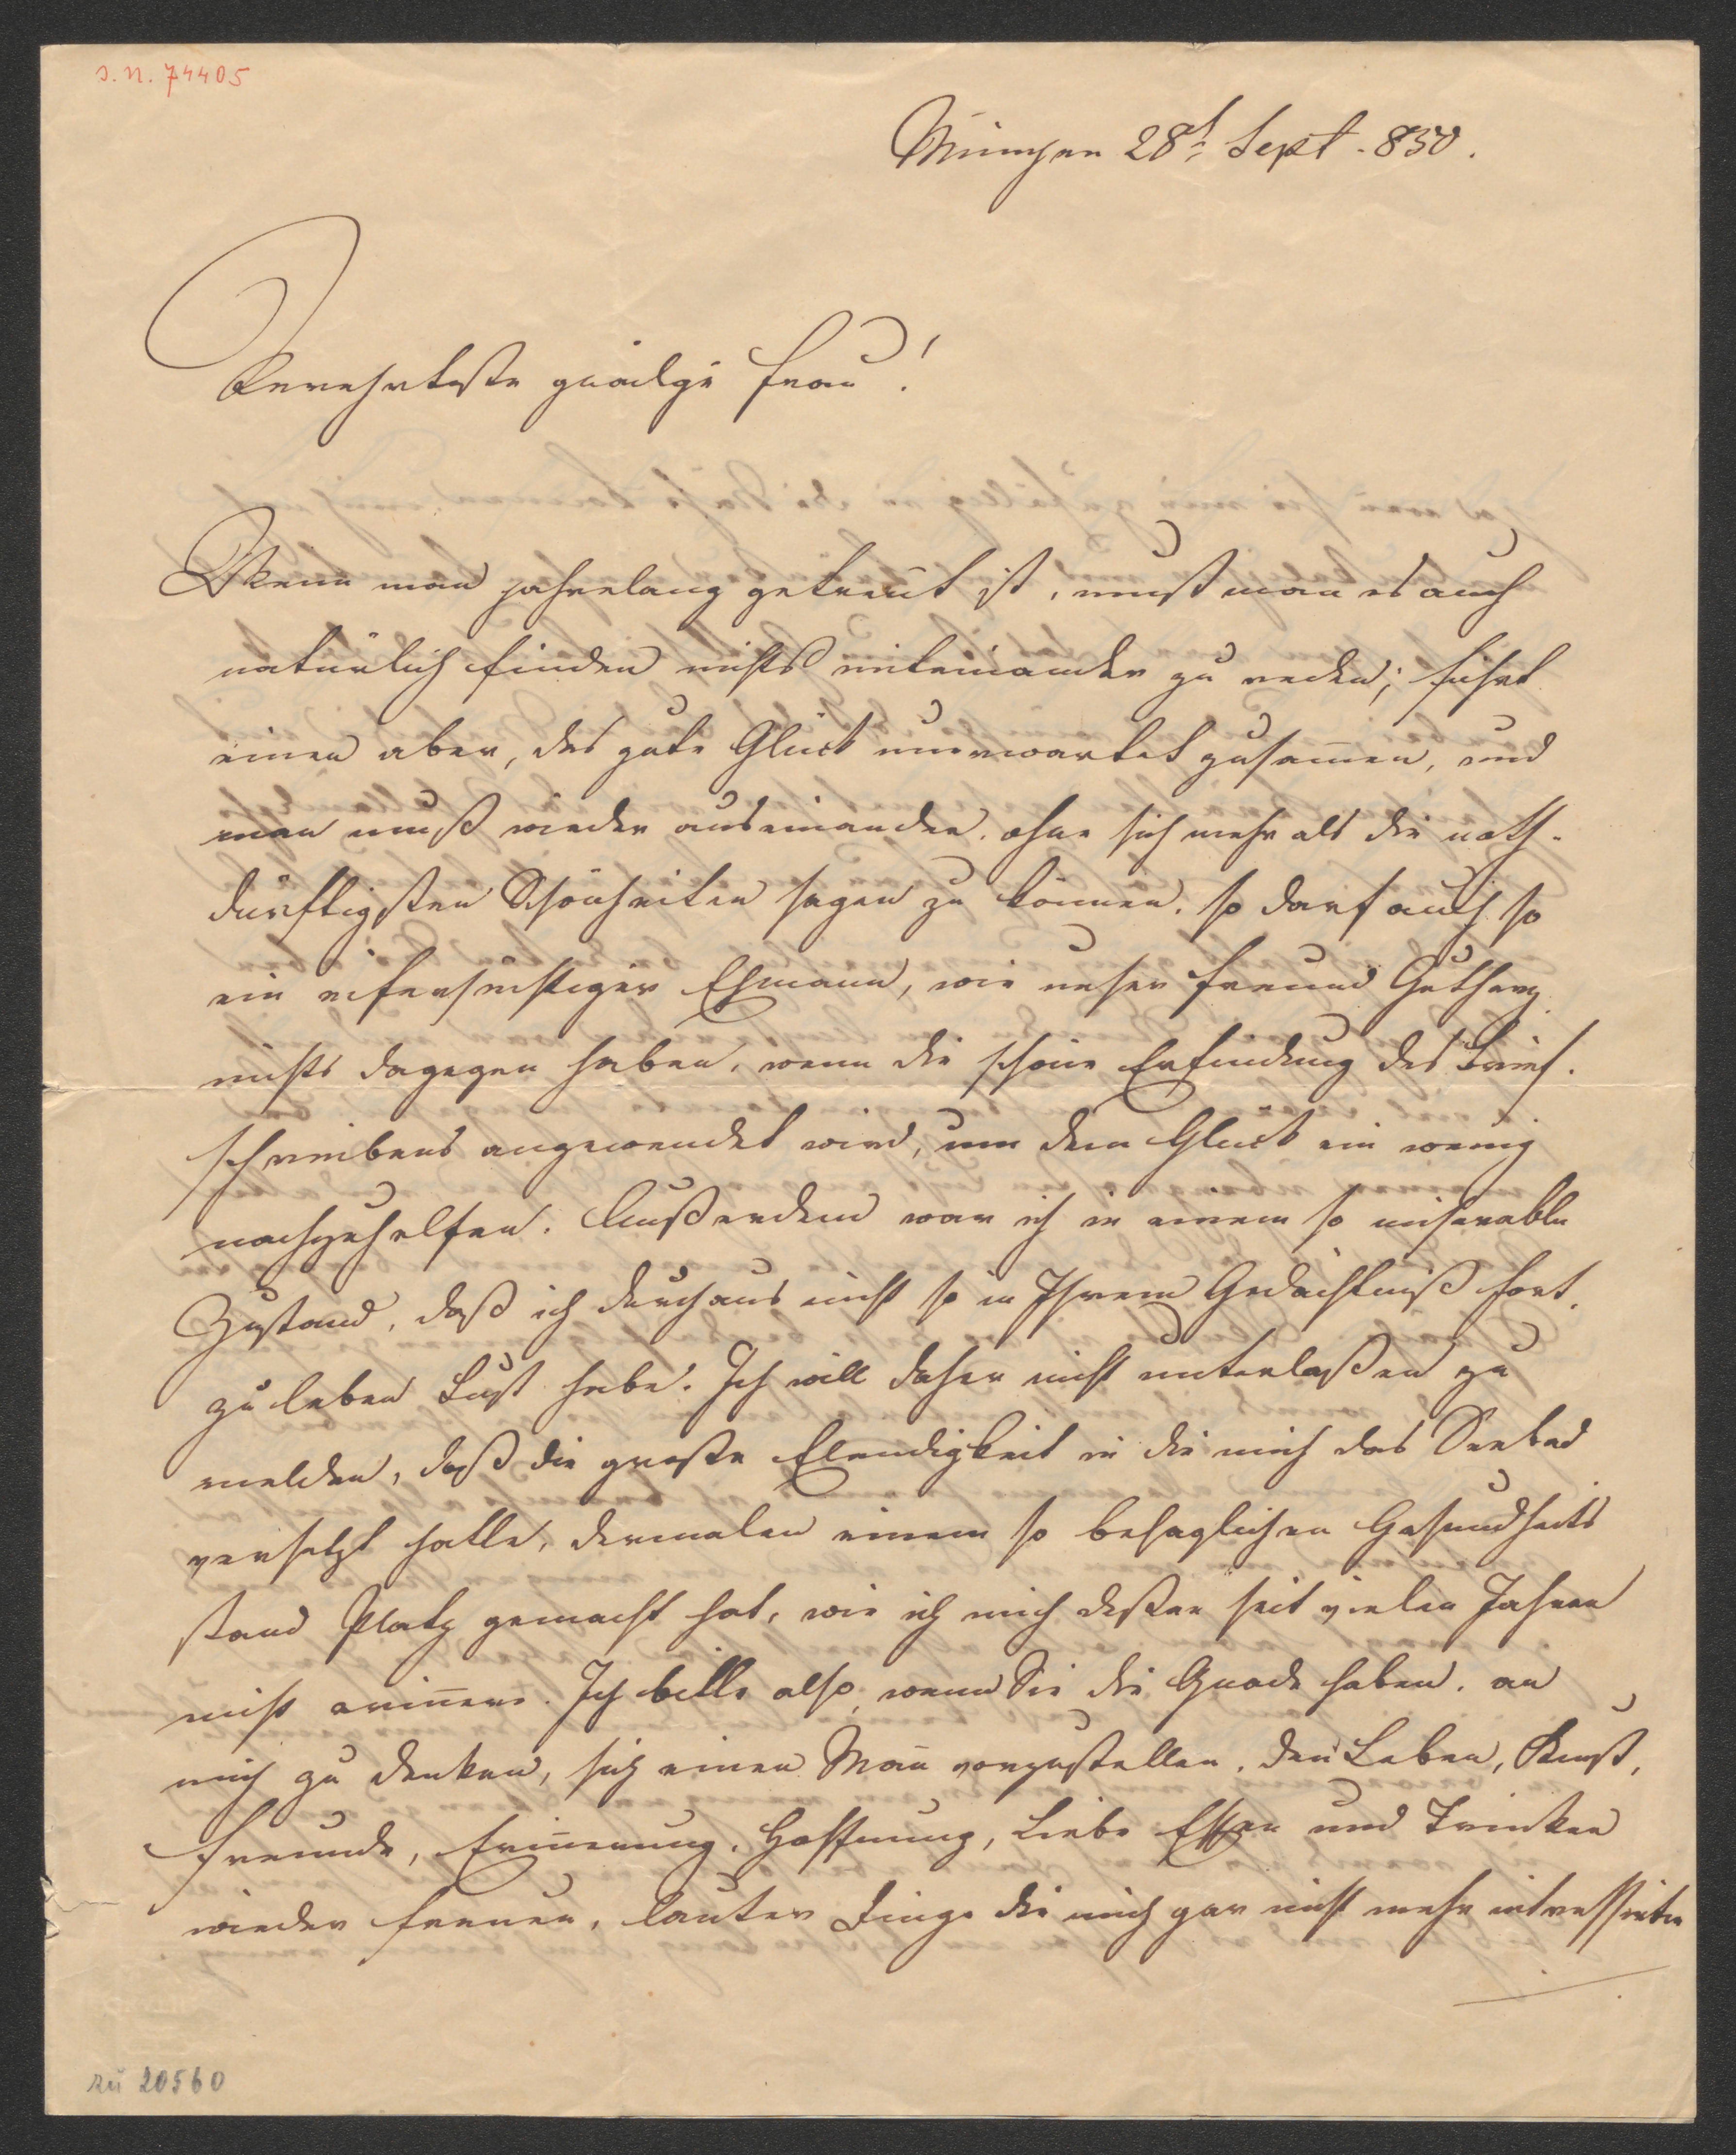 J. N. 74405
München 28t. Sept. 850.
Verehrteste gnädige Frau!
Wenn man jahrelang getreñt ist, muß man es auch
natürlich finden nichts miteinander zu reden; führt
einen aber, das gute Glück unerwartet zusam̄en, und
man muß wieder auseinander, ohne sich mehr als die noth-
dürftigsten Schönheiten sagen zu können, so darf auch so
ein eifersüchtiger Ehmann, wie unser Freund
nichts dagegen haben, wenn die schöne Erfindung des Brief-
schreibens angewendet wird, um dem Glück ein wenig
nachzuhelfen. Außerdem war ich in einem so miserablen
Zustand, daß ich durchaus nicht so in Ihrem Gedächtniß fort-
zuleben Lust habe. Ich will daher nicht unterlaßen zu
melden, daß die große Elendigkeit in die mich das Seebad
versetzt hatte, dermalen einem so behaglichen Gesundheits
stand Platz gemacht hat, wie ich mich deßen seit vielen Jahren
nicht eriñere. Ich bitte also, wenn Sie die Gnade haben, an
mich zu denken, sich einen Mañ vorzustellen, den Leben, Kunst,
Freunde, Eriñerung, Hoffnung, Liebe Essen und Trinken
wieder freuen, lauter Dinge die mich gar nicht mehr intressirten
zu 20560